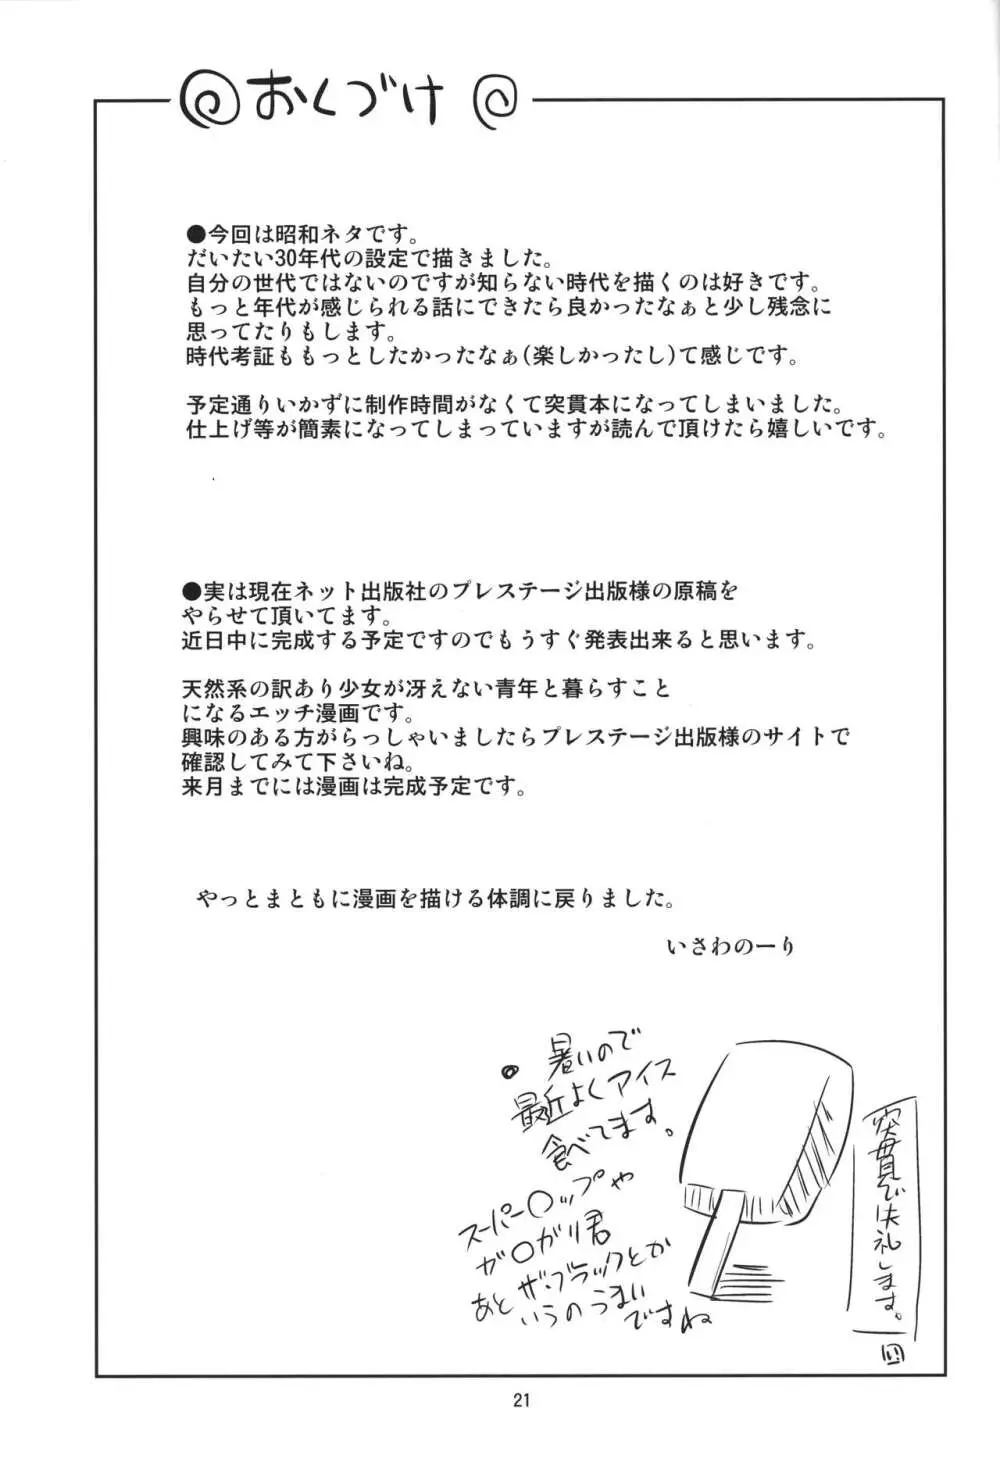 おくづけ
●今回は昭和ネタです。
だいたい30年代の設定で描きました。
自分の世代ではないのですが知らない時代を描くのは好きです。
もっと年代が感じられる話にできたら良かったなぁと少し残念に
思ってたりもします。
時代考証ももっとしたかったなぁ(楽しかったし)て感じです。
予定通りいかずに制作時間がなくて突貫本になってしまいました。
仕上げ等が簡素になってしまっていますが読んで頂けたら嬉しいです。
●実は現在ネット出版社のプレステージ出版様の原稿を
やらせて頂いてます。
近日中に完成する予定ですのでもうすぐ発表出来ると思います。
天然系の訳あり少女が冴えない青年と暮らすこと
になるエッチ漫画です。
興味のある方がらっしゃいましたらプレステージ出版様のサイトで
確認してみて下さいね。
来月までには漫画は完成予定です。
やっとまともに漫画を描ける体調に戻りました。
いさわのーり
暑いので
最近よくアイス
食べてます。
スーパー〇ップや
ガ〇ガリ君
あとザ・ブラックとか
いうのうまい
ですね
突貫で失礼します。
21